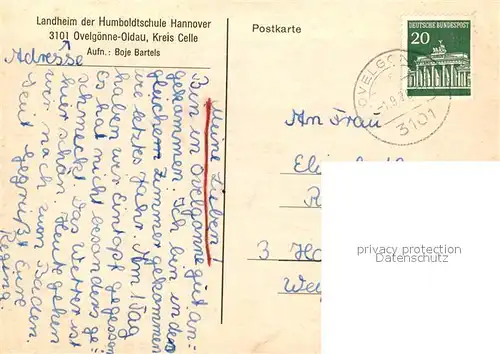 Landheim der Humboldtschule Hannover
3101 Ovelgönne-Oldau, Kreis Celle
Aufn.: Boje Bartels
Adresse
Postkarte
DEUTSCHE BUNDESPOST
20
OVELGÖ
3101
Meine Lieben!
Bin in Ovelgönne gut an-
gekommen. Ich bin in dem
gleichem Zimmer gekommen
wie letztes Jahr. Am 1 Tag
haben wir Eintopf gegessen
Es hat nicht besonders ge-
schmeckt. Das Wetter ist
hier schön. Heute gehen
wir noch zum Baden.
Seit gegrüßt Eure
Regina.
An Frau
3 Ha
privacy protection
Datenschutz